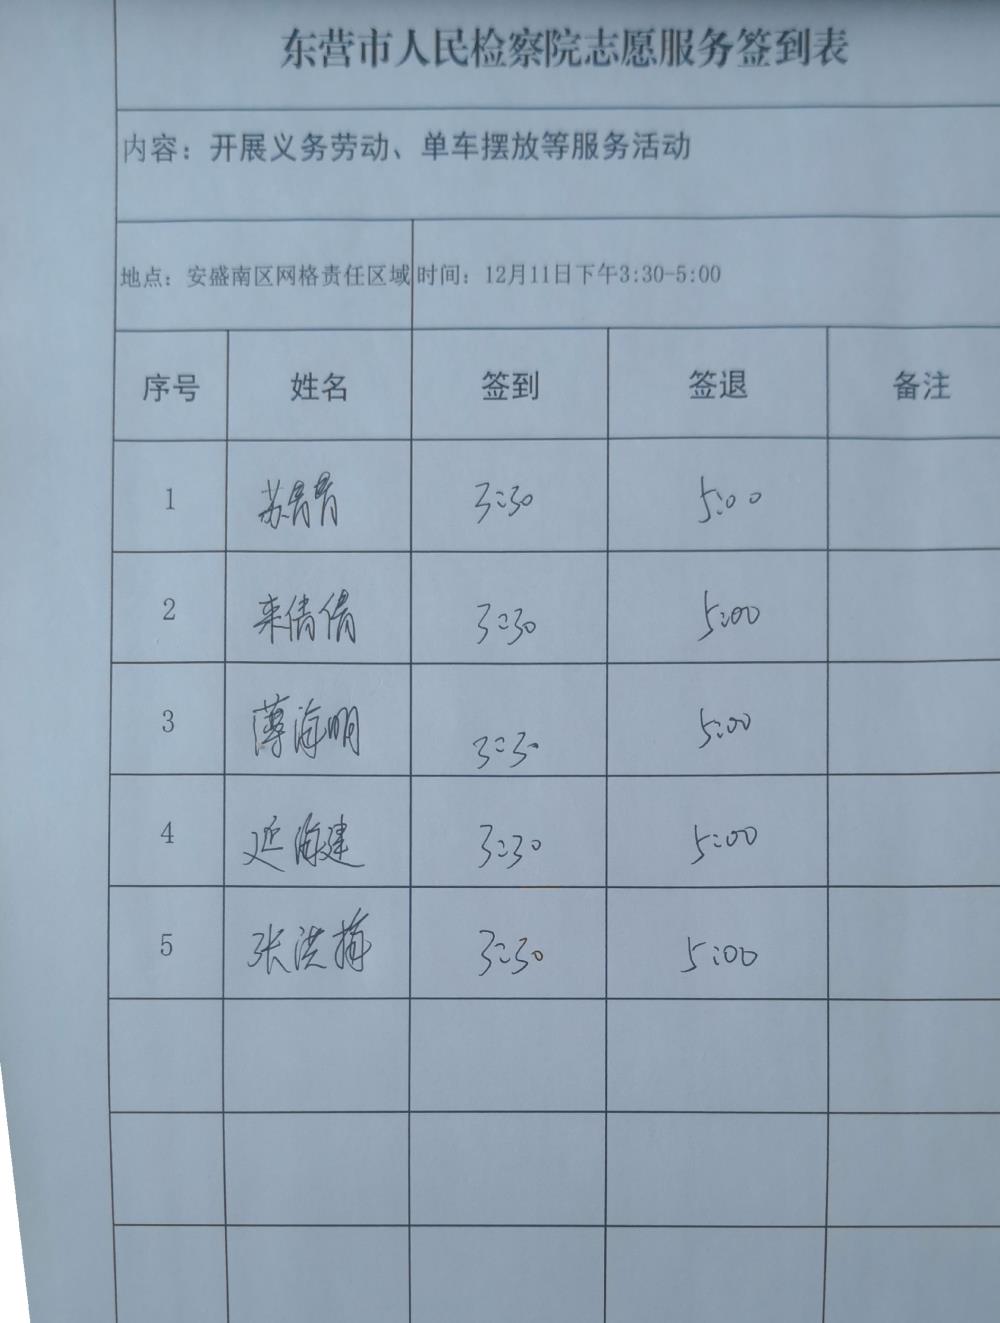 东营市人民检察院志愿服务签到表
内容：开展义务劳动、单车摆放等服务活动
地点：安盛南区网格责任区域 时间：12月11日下午3:30-5:00
序号 姓名 签到 签退 备注
1 苏青青 3:30 5:00
2 栾倩倩 3:30 5:00
3 薄海明 3:30 5:00
4 延海建 3:30 5:00
5 张洪楠 3:30 5:00